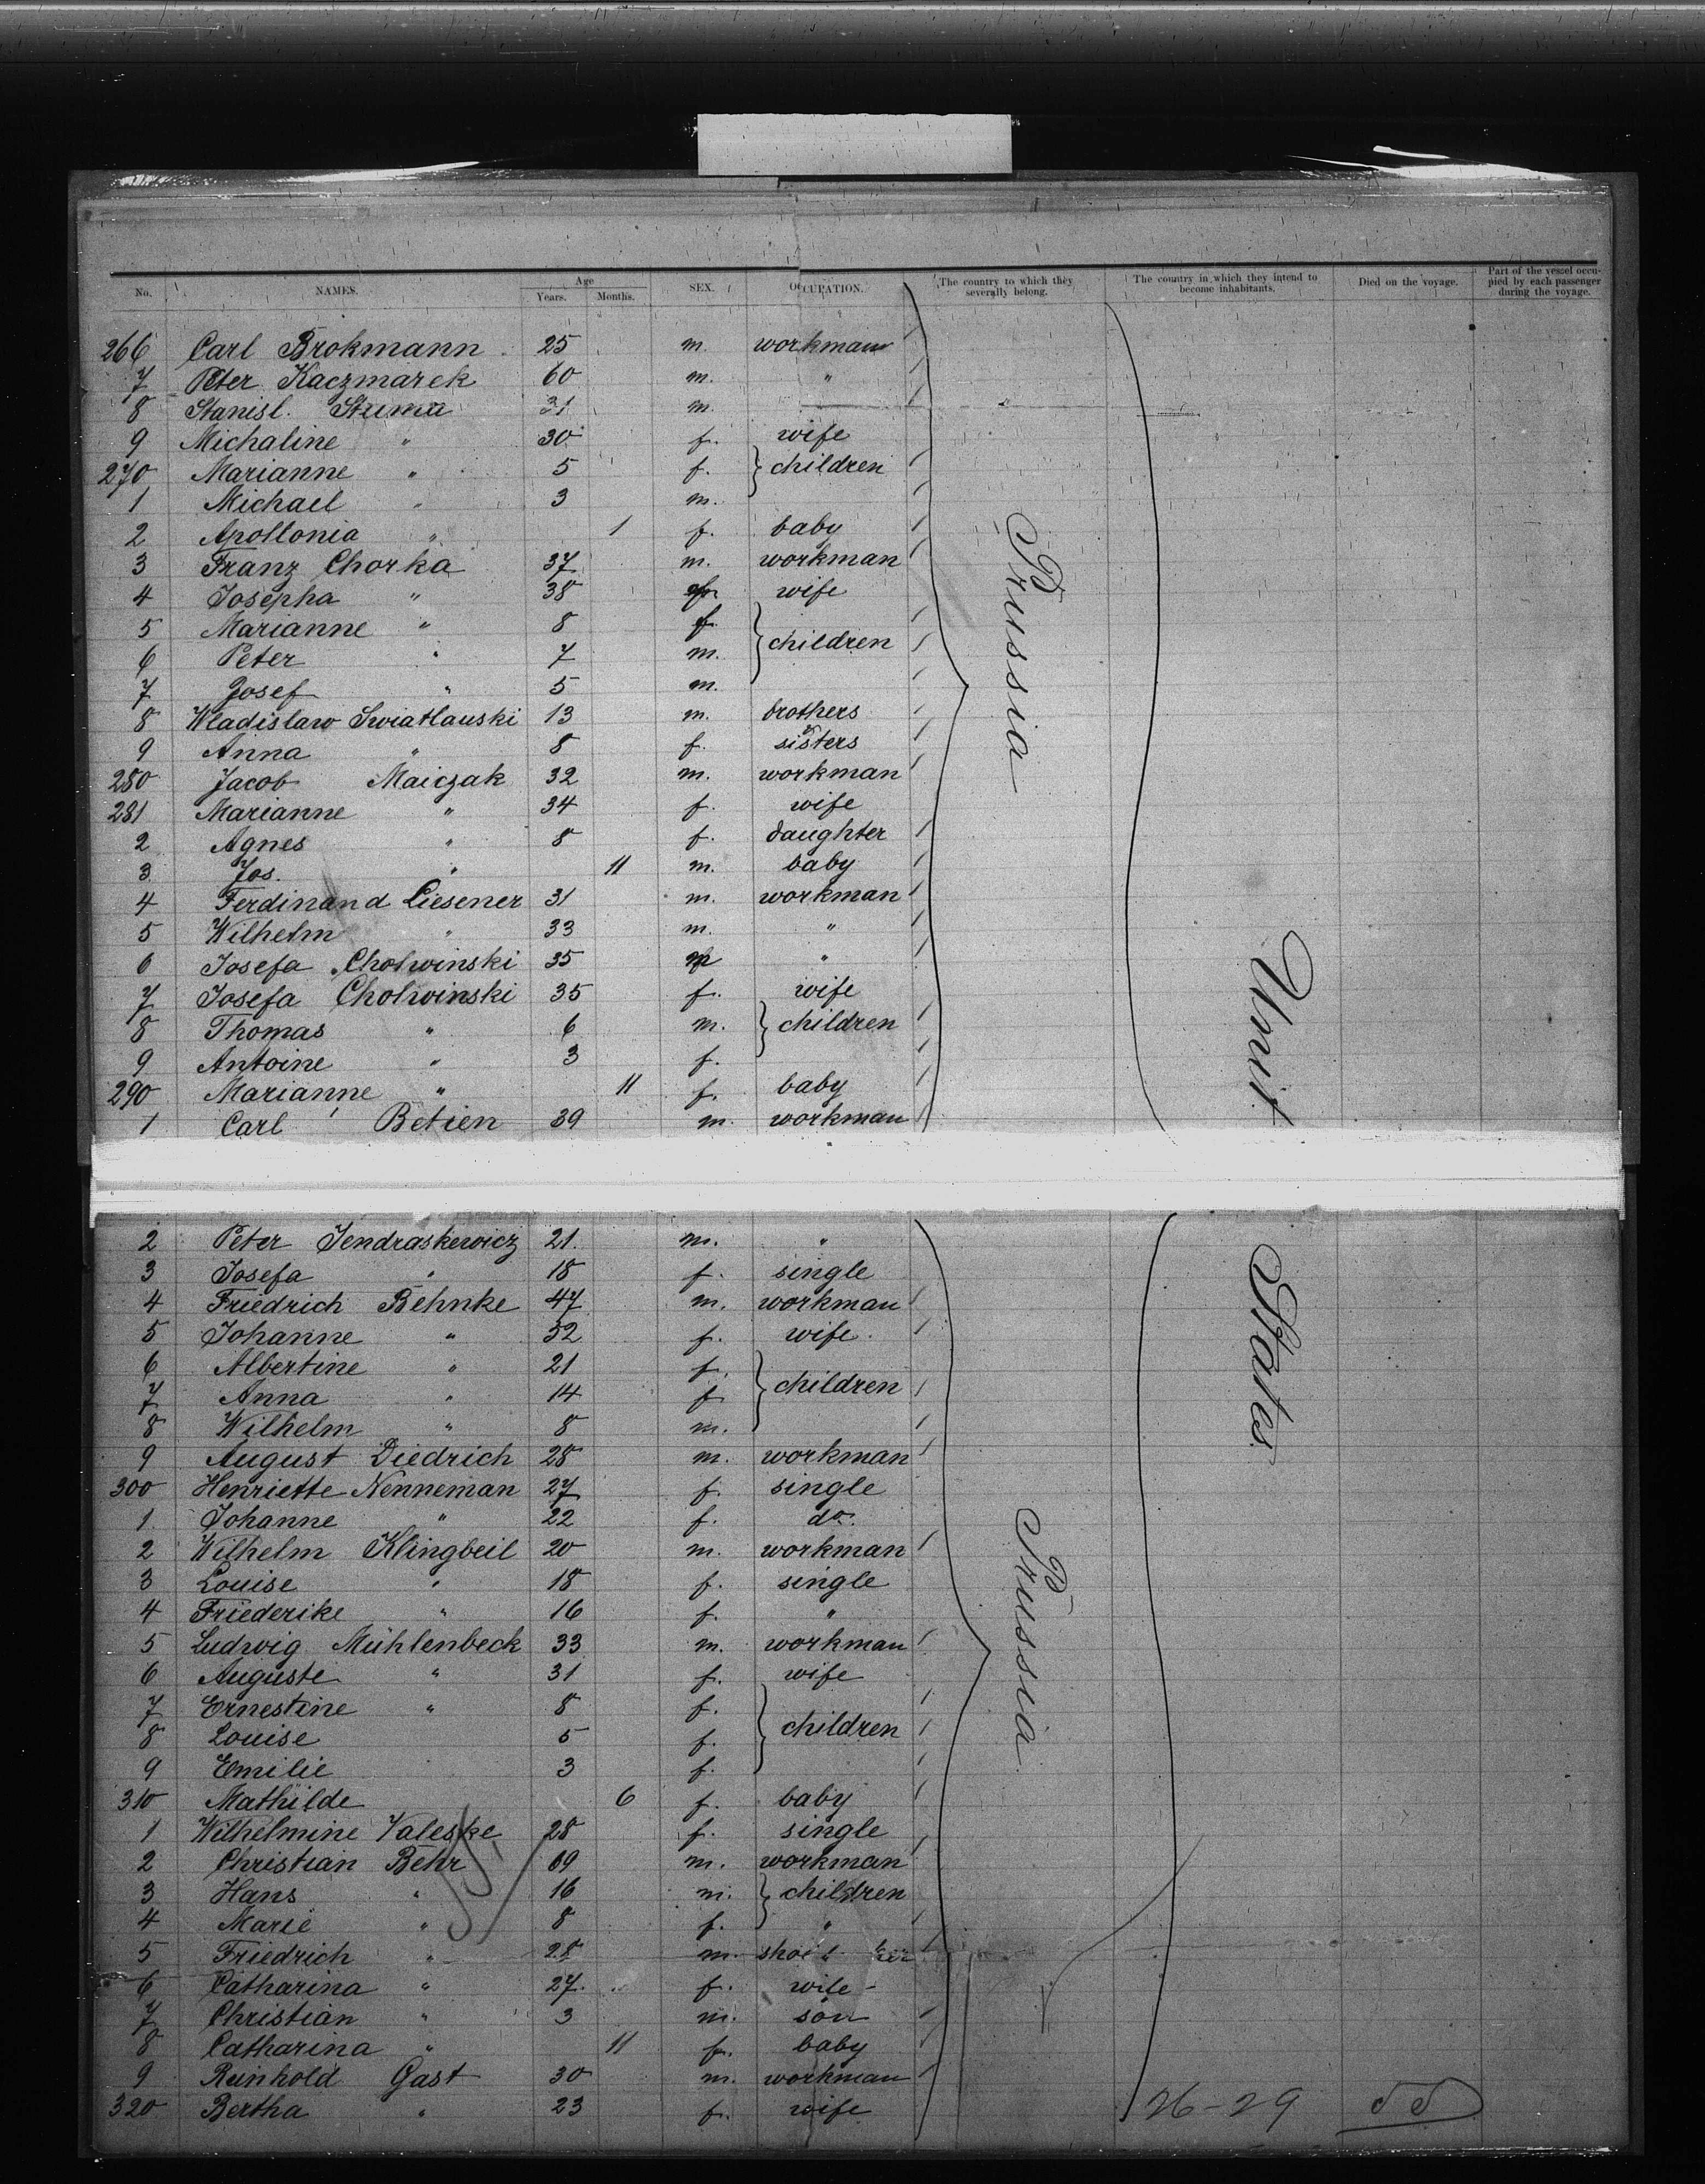 No. NAMES. Age Years. Months. SEX. OCCUPATION. The country to which they severally belong. The country in which they intend to become inhabitants. Died on the voyage. Part of the vessel occupied by each passenger during the voyage.
266 Carl Brokmann 25 m. workman
7 Peter Kaczmarek 60 m. "
8 Stanisl. Stuma 31 m.
9 Michaline " 30 f. wife
270 Marianne " 5 f. } children
1 Michael " 3 m.
2 Apollonia " 1 f. baby
3 Franz Chorka 37 m. workman
4 Josepha " 38 f. wife
5 Marianne " 8 f. } children
6 Peter " 7 m.
7 Josef " 5 m.
8 Wladislaw Swiatlauski 13 m. brothers
9 Anna " 8 f. sisters
280 Jacob Maiczak 32 m. workman
281 Marianne " 34 f. wife
2 Agnes " 8 f. daughter
3 Jos. " 11 m. baby
4 Ferdinand Liesener 31 m. workman
5 Wilhelm " 33 m. "
6 Josefa Cholwinski 35 "
7 Josefa Cholwinski 35 f. wife
8 Thomas " 6 m. } children
9 Antoine " 3 f.
290 Marianne " 11 f. baby
1 Carl Betien 39 m. workman
Prussia
Unit
2 Peter Jendraskewicz 21. m. "
3 Josefa " 18 f. single
4 Friedrich Behnke 47 m. workman
5 Johanne " 52 f. wife.
6 Albertine " 21 f. } children
7 Anna " 14 f
8 Wilhelm " 8 m.
9 August Diedrich 28 m. workman
300 Henriette Nenneman 27 f. single
1. Johanne " 22 f. do.
2 Wilhelm Klingbeil 20 m. workman
3 Louise " 18 f. single
4 Friederike " 16 f. "
5 Ludwig Mühlenbeck 33 m. workman
6 Auguste " 31 f. wife
7 Ernestine " 8 f. } children
8 Louise 5 f.
9 Emilie 3 f.
310 Mathilde 6 f. baby
1 Wilhelmine Valeske 28 f. single
2 Christian Behr 69 m. workman
3 Hans " 16 m. } children
4 Marie " 8 f. "
5 Friedrich " 28 m.
6 Catharina " 27. f. wife
7 Christian " 3 m. son
8 Catharina " 11 f. baby
9 Reinhold Gast 30 m. workman
320 Bertha " 23 f. wife
Prussia
States
26-29